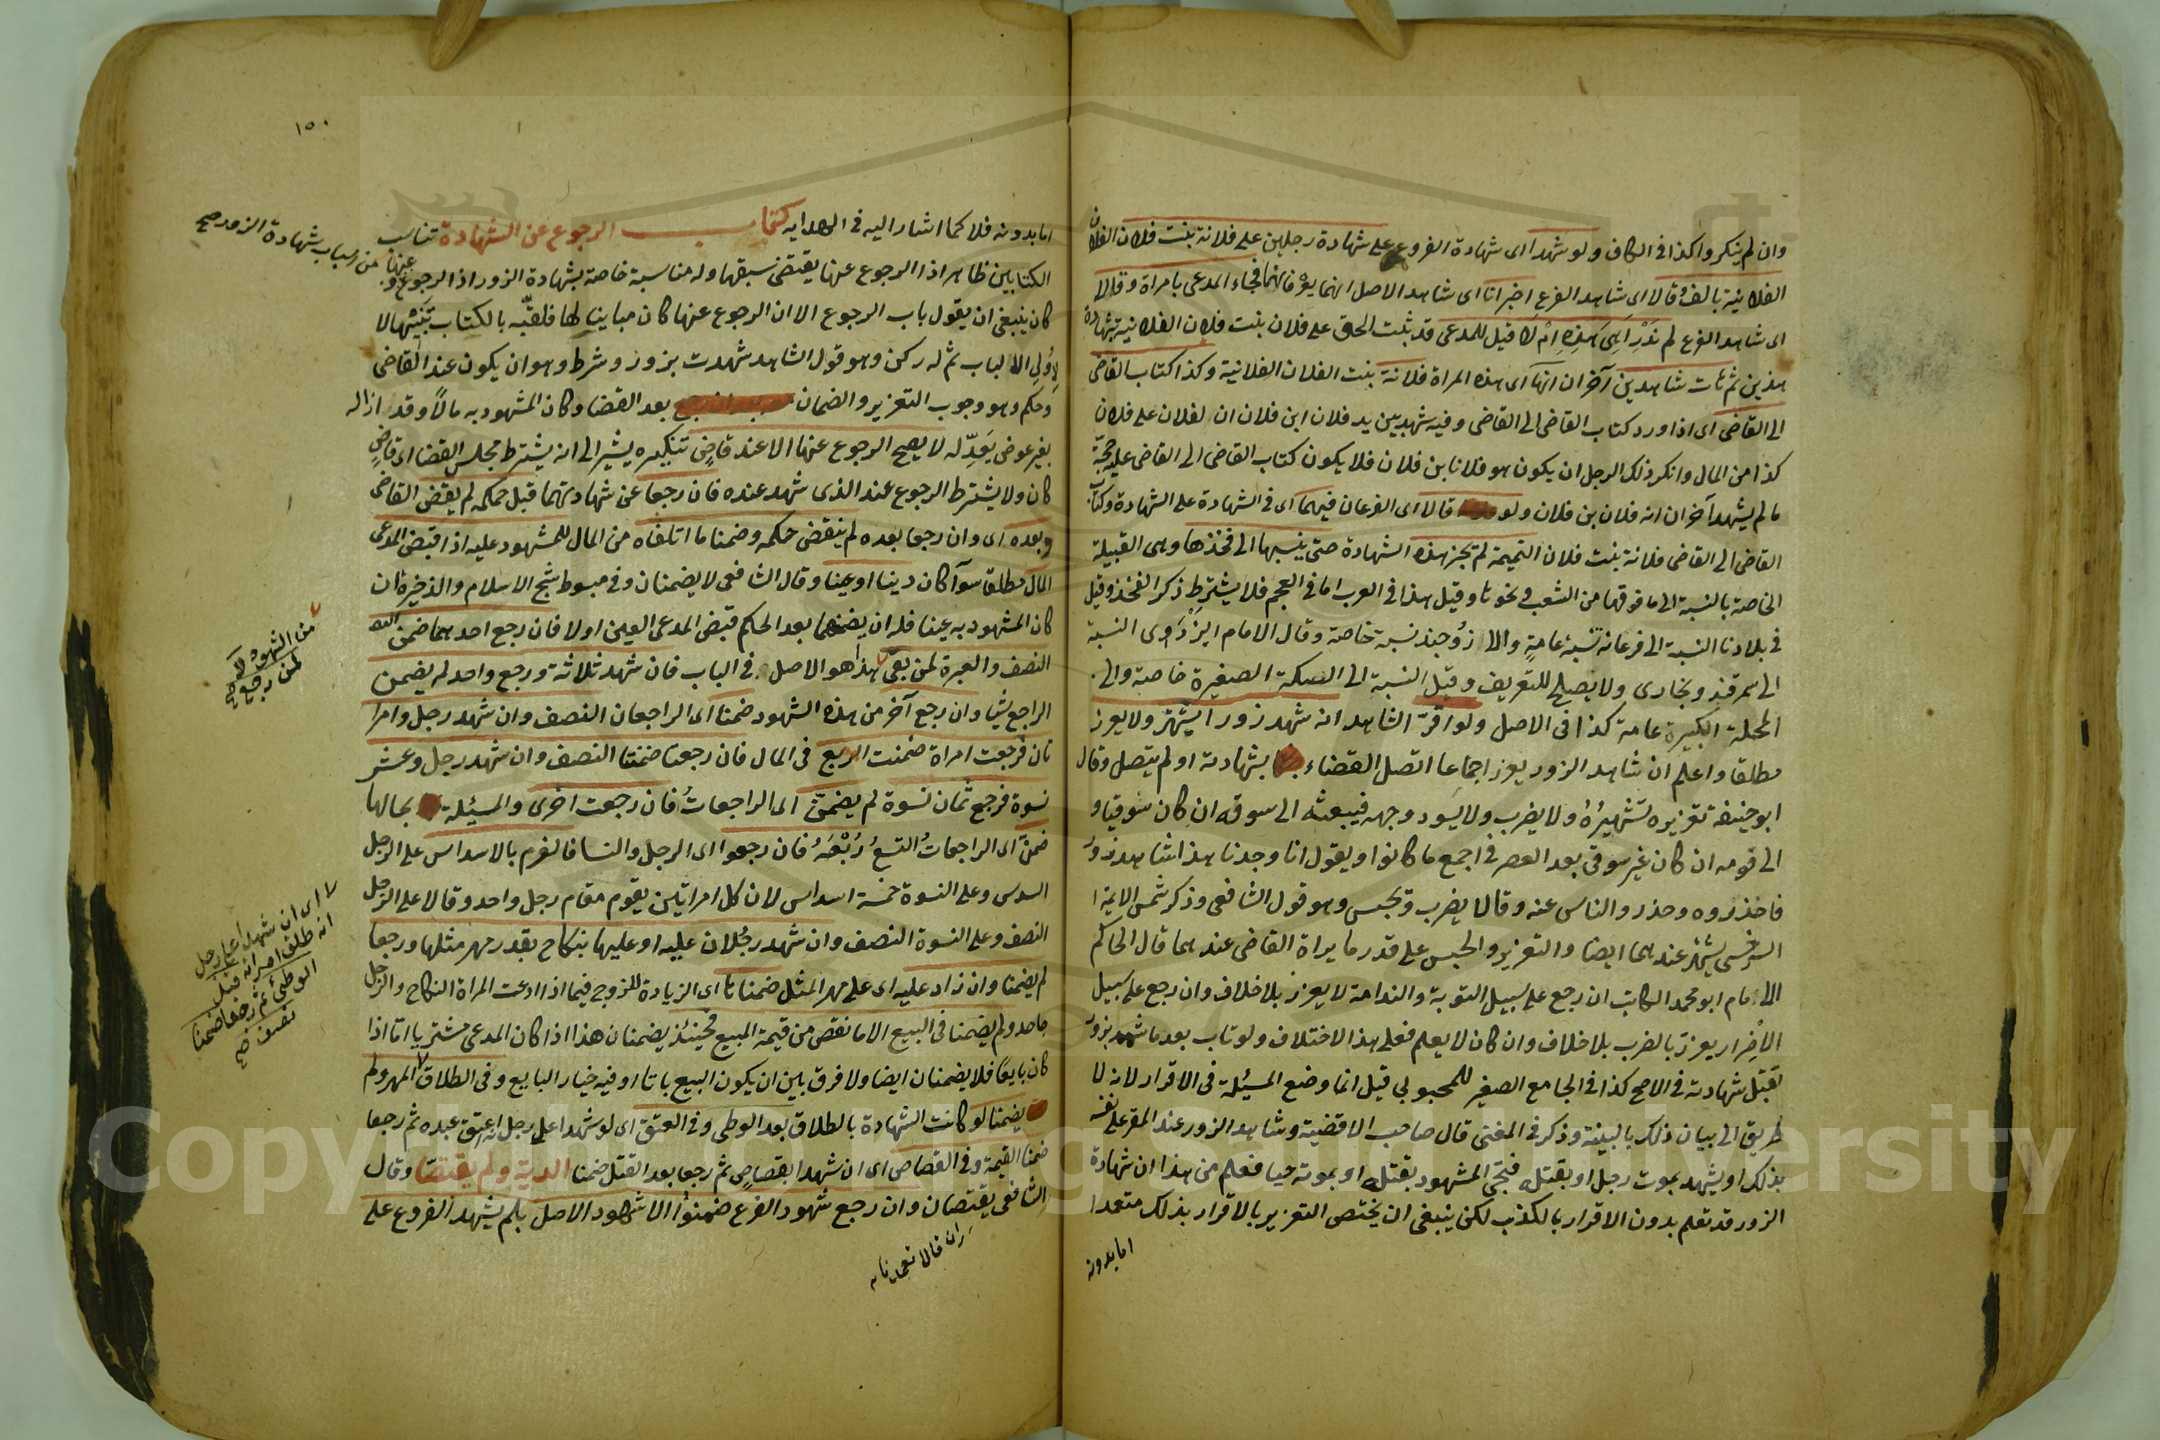 وان لم ينكروا كذا في الكافي ولو شهدا اى شهادة الفروع على شهادة رجلين على فلانة بنت فلان الفلان
الفلانية بالف وقالا اى شاهد الفرع اخبرانا اى شاهد الاصل انهما يعرفانهما فجاء المدعى بامراة وقالا
اى شاهد الفرع لم ندر اهى هذه ام لا قيل للمدعى قد ثبت الحق على فلان بنت فلان الفلانية بشهادة
هذين ثم هات شاهدين آخران انها اى هذه المراة فلانة بنت الفلان الفلانية وكذا كتاب القاضى
الى القاضى اى اذا ورد كتاب القاضى الى القاضى وفيه شهد بين يد فلان ابن فلان ان لفلان على فلان
كذا من المال وانكر ذلك الرجل ان يكون هو فلانا بن فلان فلا يكون كتاب القاضى الى القاضى عليه حجة
ما لم يشهد آخران انه فلان بن فلان ولو قالا اى الفرعان فيهما اى في الشهادة على الشهادة وكتاب
القاضى الى القاضى فلانة بنت فلان التميمة لم تجز هذه الشهادة حتى ينسبها الى فخذها وهى القبيلة
الخاصة بالنسبة الى ما فوقها من الشعب ونحوها وقيل هذا في العرب اما في العجم فلا يشترط ذكر الفخذ وقيل
في بلادنا النسبة الى فرغانة نسبة عامة والى اوزجند نسبة خاصة وقال الامام البزدوى النسبة
الى سمرقند وبخارى ولا يصلح للتعريف وقيل النسبة الى السكة الصغيرة خاصة والى
المحلة الكبيرة عامة كذا في الاصل ولو اقر الشاهد انه شهد زورا يشهر ولا يعزر
مطلقا واعلم ان شاهد الزور يعزر اجماعا اتصل القضاء بشهادته او لم يتصل وقال
ابو حنيفة تعزيره تشهيره ولا يضرب ولا يسود وجهه فيبعثه الى سوقه ان كان سوقيا و
الى قومه ان كان غير سوقى بعد العصر في اجمع ما كانوا ويقول انا وجدنا هذا شاهد زور
فاحذروه وحذروا الناس عنه وقالا يضرب ويحبس وهو قول الشافعى وذكر شمس الايمة
السرخسى يشهر عندهما ايضا والتعزير والحبس على قدر ما يراه القاضى عندهما قال الحاكم
الامام ابو محمد الكاتب ان رجع على سبيل التوبة والندامة لا يعزر بلا خلاف وان رجع على سبيل
الاصرار يعزر بالضرب بلا خلاف وان كان لا يعلم فعلى هذا الاختلاف ولو تاب بعد ما شهد بزور
تقبل شهادته في الاصح كذا في الجامع الصغير للمحبوبى قيل انما وضع المسئلة في الاقرار لانه لا
طريق الى بيان ذلك بالبينة وذكر في المغنى قال صاحب الاقضية وشاهد الزور عند المقر على نفسه
بذلك او يشهد بموت رجل او بقتله فيجئ المشهود بقتله او بموته حيا فعلم من هذا ان شهادة
الزور قد تعلم بدون الاقرار بالكذب لكن ينبغى ان يختص التعزير بالاقرار بذلك متعمدا
اما بدونه
١٥٠
اما بدونه فلا كما اشار اليه في الهدايه كتاب الرجوع عن الشهادة تناسب
الكتابين ظاهر اذ الرجوع عنها يقتضى سبقها وله مناسبة خاصة بشهادة الزور اذ الرجوع عنها
من اسباب شهادة الزور صح
كان ينبغى ان يقول باب الرجوع الا ان الرجوع عنها كان مباينا لها فلقبه بالكتاب تنبيها
لاولى الالباب ثم له ركن وهو قول الشاهد شهدت بزور وشرط وهو ان يكون عند القاضى
وحكم وهو وجوب التعزير والضمان بعد القضا وكان المشهود به مالا وقد ازاله
بغير عوض يعدله لا يصح الرجوع عنها الا عند قاض بتنكيره يشير الى انه يشترط مجلس القضا اى قاض
كان ولا يشترط الرجوع عند الذى شهد عنده فان رجعا عن شهادتهما قبل حكمه لم يقض القاضى
وبعده اى وان رجعا بعده لم ينقض حكمه وضمنا ما اتلفاه من المال للمشهود عليه اذا قبض المدعى
المال مطلقا سوآ كان دينا او عينا وقال الشافعى لا يضمنان وفي مبسوط شيخ الاسلام والذخيرة ان
كان المشهود به عينا فله ان يضمنهما بعد الحكم قبض المدعى العين اولا فان رجع احدهما ضمن
النصف والعبرة لمن بقى هذا هو الاصل في الباب فان شهد ثلاثة ورجع واحد لم يضمن
من الشهود لا
لمن رجع صح
الراجع شيا وان رجع آخر من هذه الشهود ضمنا اى الراجعان النصف وان شهد رجل وامرا
تان فرجعت امراة ضمنت الربع في المال فان رجعتا ضمنتا النصف وان شهد رجل وعشر
نسوة فرجع ثمان نسوة لم يضمن اى الراجعات فان رجعت اخرى والمسئلة بحالها
ضمن اى الراجعات التسع ربعه فان رجعوا اى الرجل والنسا فالغرم بالاسداس على الرجل
السدس وعلى النسوة خمسة اسداس لان كل امراتين يقوم مقام رجل واحد وقالا على الرجل
النصف وعلى النسوة النصف وان شهد رجلان عليه او عليها بنكاح بقدر مهر مثلها ورجعا
لم يضمنا وان زاد عليه اى على مهر المثل ضمناها اى الزيادة للزوج فيما اذا ادعت المراة النكاح والرجل
جاحد ولم يضمنا في البيع الا ما نقص من قيمة المبيع فحينئذ يضمنان هذا اذا كان المدعى مشتريا اما اذا
كان بايعا فلا يضمنان ايضا ولا فرق بين ان يكون البيع باتا او فيه خيار البايع وفي الطلاق المهر ولم
اى ان شهدا على رجل
انه طلق امراته قبل
الوطئ ثم رجعا ضمنا
نصف صح
يضمنا لو كانت الشهادة بالطلاق بعد الوطى وفي العتق اى لو شهدا على رجل انه اعتق عبده ثم رجعا
ضمنا القيمة وفي القصاص اى ان شهدا بقصاص ثم رجعا بعد القتل ضمنا الدية ولم يقتصا وقال
الشافعى يقتصان وان رجع شهود الفرع ضمنوا لا شهود الاصل بلم يشهد الفروع على
وان قالا تعمدنا